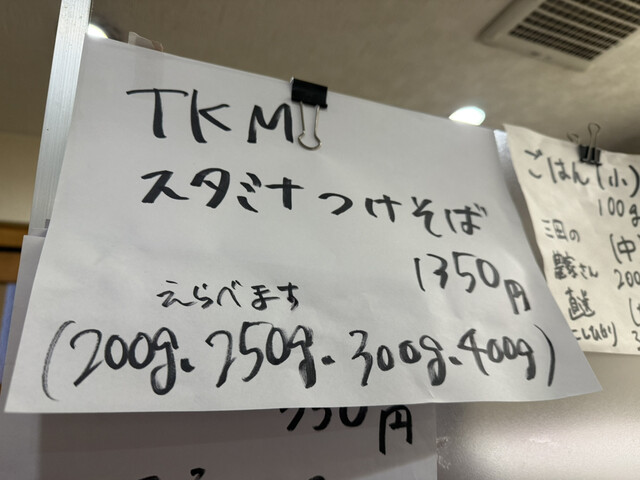 TKM
スタミナつけそば
1350円
えらべます
(200g、250g、300g、400g)
ごはん(小)
100g
三田の
農家さん
直送
こしひかり
(中)
200
350円